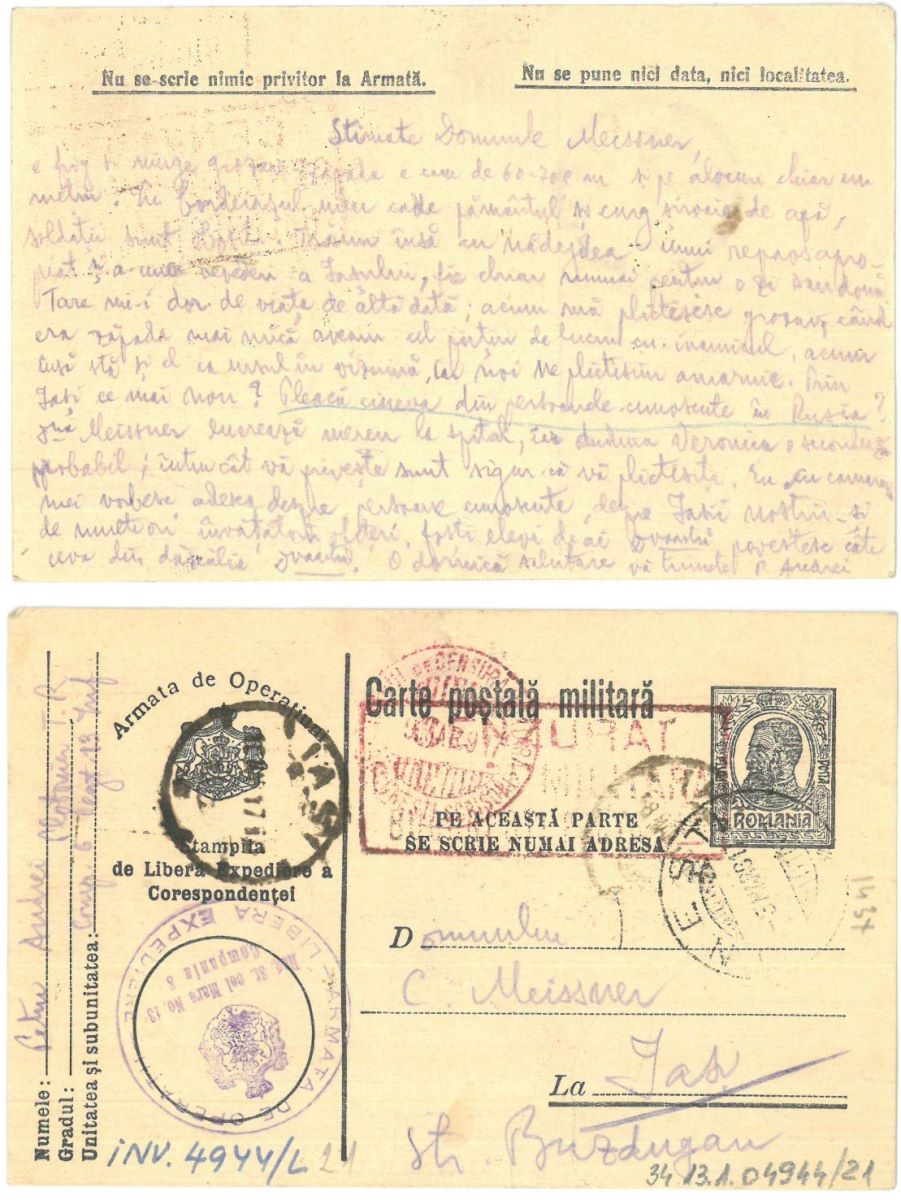 Nu se scrie nimic privitor la Armată.
Nu se pune nici data, nici localitatea.
Stimate Domnule Meissner,
e frig și ninge grozav. Zăpada e cam de 60-70 c m și pe alocuri chiar un
metru. În bordeiașul meu cade pământul și curg șiroaie de apă,
soldații sunt Trăim însă cu nădejdea unui repaos apro-
piat și a unei revederi a Iașului, fie chiar numai pentru o zi sau două
Tare mi-i dor de viața de altă dată; acum mă plictisesc grozav, când
era zăpada mai mică, aveam cel puțin de lucru cu inamicul, acum
însă stă și el ca ursul în vizuină, iar noi ne plictisim amarnic. Prin
Iași ce mai nou? Pleacă cineva din persoanele cunoscute în Rusia?
Meissner lucrează mereu la spital, iar duduia Veronica o secondează
probabil; întru cât vă privește sunt sigur că vă plictisiți. Eu cu camarazii
mei vorbesc adesea despre persoane cunoscute, despre Iașii noștri și
de multe ori învățătorii ofițeri, foști elevi de ai Dvoastră povestesc câte
ceva din dăscălia Dvoastră. O dornică salutare vă trimete P. Andrei
Armata de Operațiuni
Carte poștală militară
ROMANIA
PE ACEASTĂ PARTE
SE SCRIE NUMAI ADRESA
IAȘI
Ștampila
de Liberă Expediere a
Corespondenței
CENZURAT
MILITARĂ
ARMATA DE OPERAȚII
LIBERA EXPEDIERE
Reg. Șt. cel Mare No. 13
Compania 8
Numele: Petru Andrei
Gradul:
Unitatea și subunitatea: Comp. 6 Regt 13 Inf
Domnului
C. Meissner
La Iași
Str. Buzdugan
1437
INV. 4944/L 21
34.13.1.04944/21